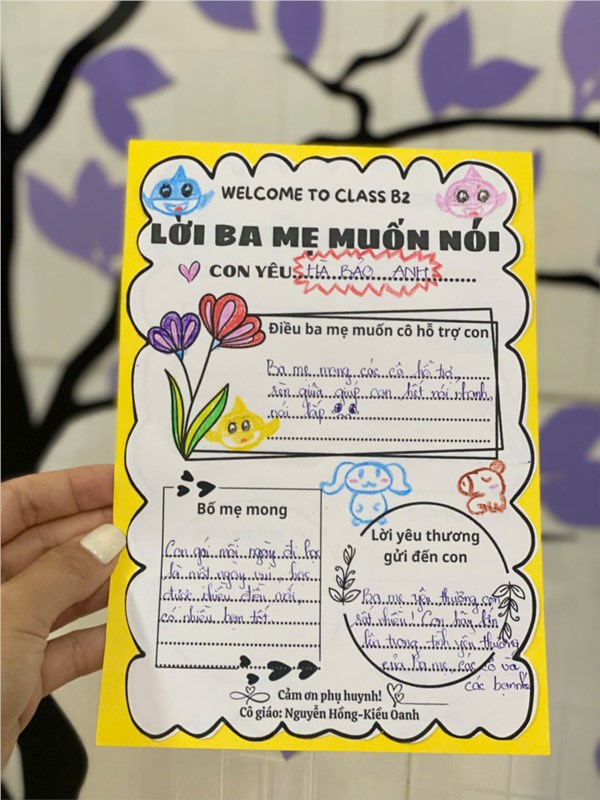 WELCOME TO CLASS B2
LỜI BA MẸ MUỐN NÓI
CON YÊU HÀ BẢO ANH
Điều ba mẹ muốn cô hỗ trợ con
Ba mẹ mong các cô hỗ trợ,
rèn giũa giúp con hết nói nhanh,
nói lắp
Bố mẹ mong
Con gái mỗi ngày đi học
là một ngày vui, học
được nhiều điều mới,
có nhiều bạn tốt
Lời yêu thương
gửi đến con
Ba mẹ yêu thương con
rất nhiều! Con hãy lớn
lên trong tình yêu thương
của ba mẹ, các cô và
các bạn nhé
Cảm ơn phụ huynh!
Cô giáo: Nguyễn Hồng-Kiều Oanh